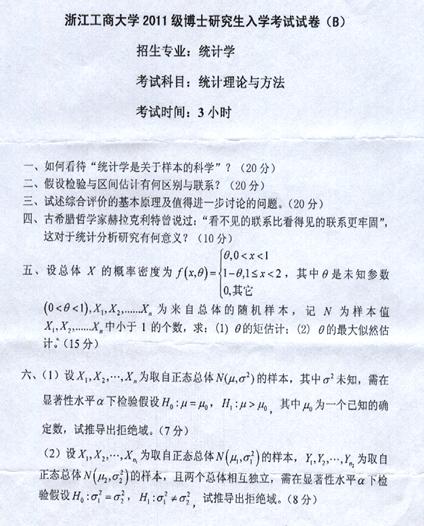 浙江工商大学 2011 级博士研究生入学考试试卷（B）
招生专业：统计学
考试科目：统计理论与方法
考试时间：3 小时
一、如何看待“统计学是关于样本的科学”？（20 分）
二、假设检验与区间估计有何区别与联系？（20 分）
三、试述综合评价的基本原理及值得进一步讨论的问题。（20 分）
四、古希腊哲学家赫拉克利特曾说过：“看不见的联系比看得见的联系更牢固”，
这对于统计分析研究有何意义？（10 分）
五、设总体 X 的概率密度为 f(x,θ)={θ,0<x<1 1−θ,1≤x<2 0,其它，其中θ是未知参数
(0<θ<1),X₁,X₂,......Xₙ 为来自总体的随机样本，记 N 为样本值
X₁,X₂,......Xₙ中小于 1 的个数，求：(1) θ的矩估计；(2) θ的最大似然估
计。（15 分）
六、（1）设X₁,X₂,⋯,Xₙ为取自正态总体N(μ,σ²)的样本，其中σ²未知，需在
显著性水平α下检验假设H₀:μ=μ₀，H₁:μ>μ₀，其中μ₀为一个已知的确
定数，试推导出拒绝域。（7 分）
（2）设X₁,X₂,⋯,Xₙ₁为取自正态总体N(μ₁,σ₁²)的样本，Y₁,Y₂,⋯,Yₙ₂为取自
正态总体N(μ₂,σ₂²)的样本，且两个总体相互独立，需在显著性水平α下检
验假设H₀:σ₁²=σ₂²，H₁:σ₁²≠σ₂²，试推导出拒绝域。（8 分）